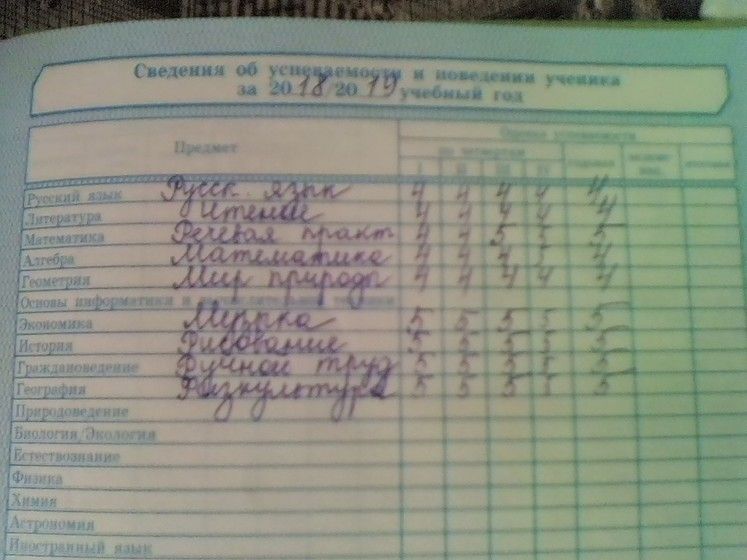 Сведения об успеваемости и поведении ученика
за 2018/2019 учебный год
Предмет
Оценка успеваемости
по четвертям
I II III IV
Русский язык Русск. язык 4 4 4 4 4
Литература Чтение 4 4 4 4 4
Математика Речевая практ 4 4 5 5 5
Алгебра Математика 4 4 4 5 4
Геометрия Мир природы 4 4 4 4 4
Основы информатики и вычислительной техники
Экономика Музыка 5 5 5 5 5
История Рисование 5 5 5 5 5
Граждановедение Ручной труд 5 5 5 5 5
География Физкультура 5 5 5 5 5
Природоведение
Биология/Экология
Естествознание
Физика
Химия
Астрономия
Иностранный язык